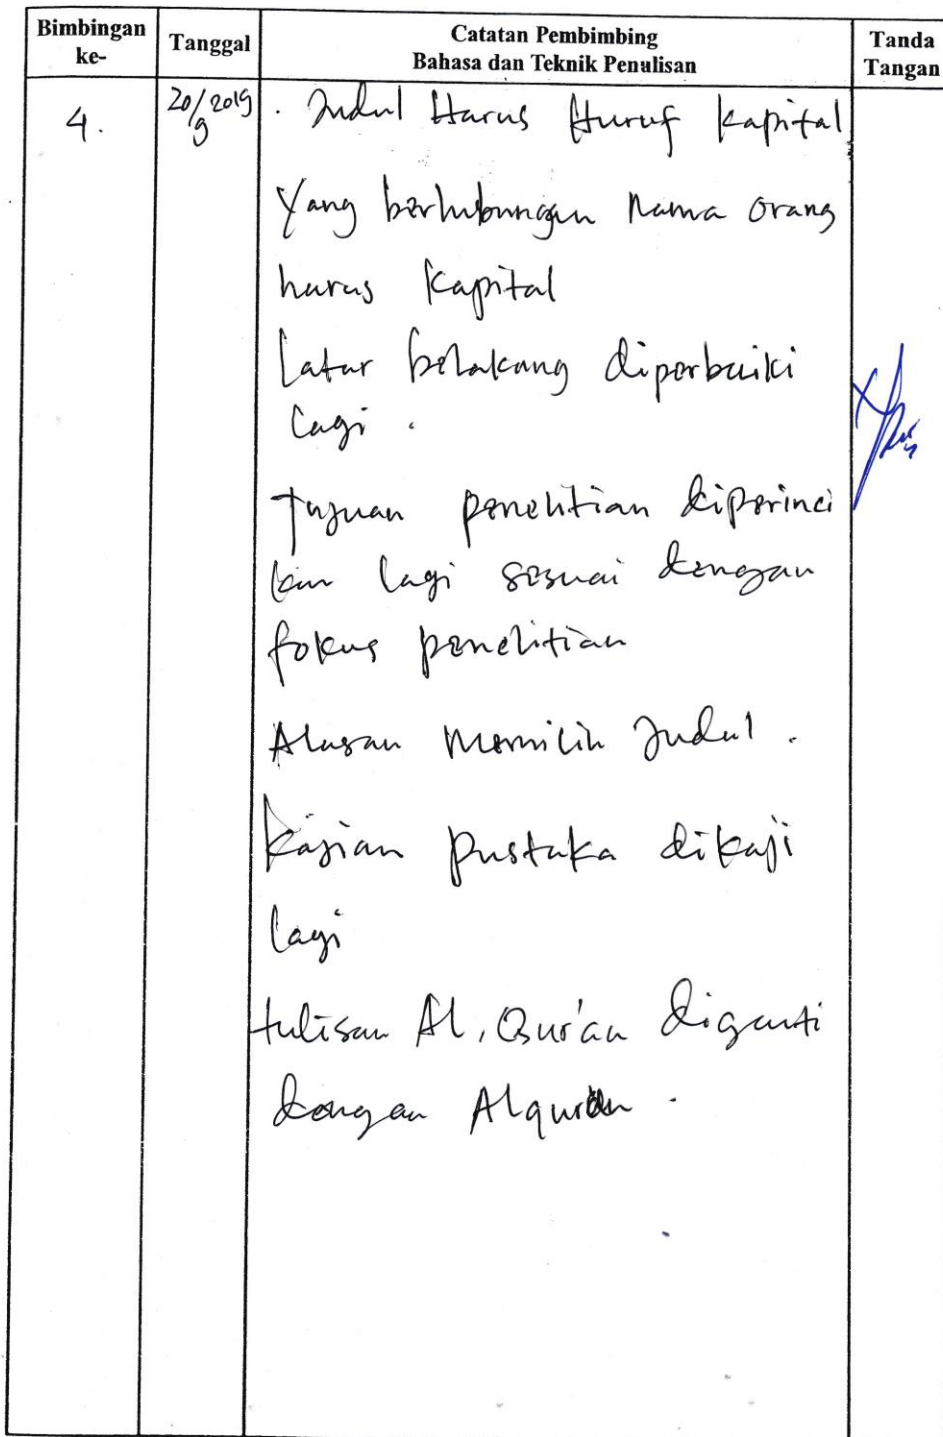 Bimbingan ke-
Tanggal
Catatan Pembimbing
Bahasa dan Teknik Penulisan
Tanda Tangan
4.
20/9 2019
. Judul Harus Huruf Kapital
Yang berhubungan Nama orang
harus Kapital
Latar belakang diperbaiki
lagi .
Tujuan penelitian diperinci
kan lagi sesuai dengan
fokus penelitian
Alasan Memilih Judul .
Kajian Pustaka dikaji
lagi
tulisan Al, Qur'an diganti
dengan Alquran .